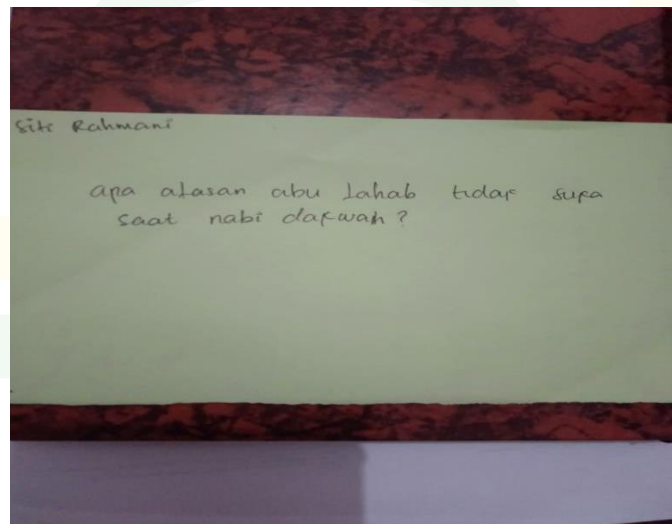 Siti Rahmani
apa alasan abu Lahab tidak suka
saat nabi dakwah?